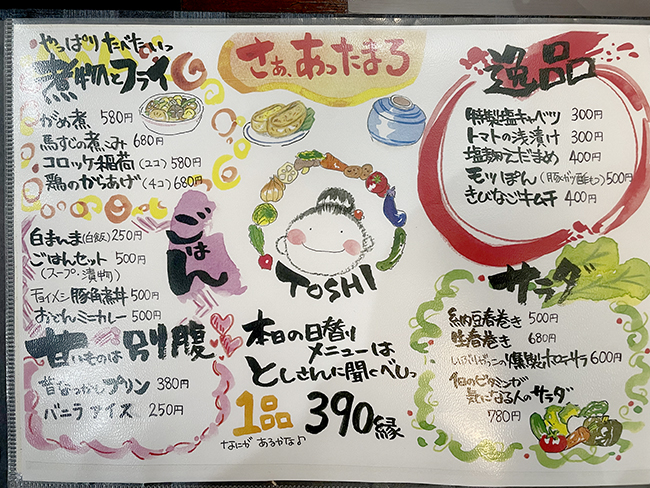 やっぱりたべたいっ
煮物とフライ
がめ煮 580円
馬すじの煮こみ 680円
コロッケ稲荷 (2コ) 580円
鶏のからあげ (4コ) 680円
さぁ、あったまろ
逸品
特製塩キャベツ 300円
トマトの浅漬け 300円
塩麹えだまめ 400円
モツぽん (豚ガツ酢もつ) 500円
きびなごキムチ 400円
ごはん
白まんま (白飯) 250円
ごはんセット 500円
(スープ、漬物)
チョイメシ豚角煮丼 500円
おとんミニカレー 500円
TOSHI
サラダ
納豆春巻き 500円
生春巻き 680円
燻製ポテサラ 600円
1日のビタミンが
気になる人のサラダ
780円
甘いものは別腹
昔なつかしプリン 380円
バニラアイス 250円
本日の日替り
メニューは
としさんに聞くべしっ
1品 390縁
なにが あるかな♪